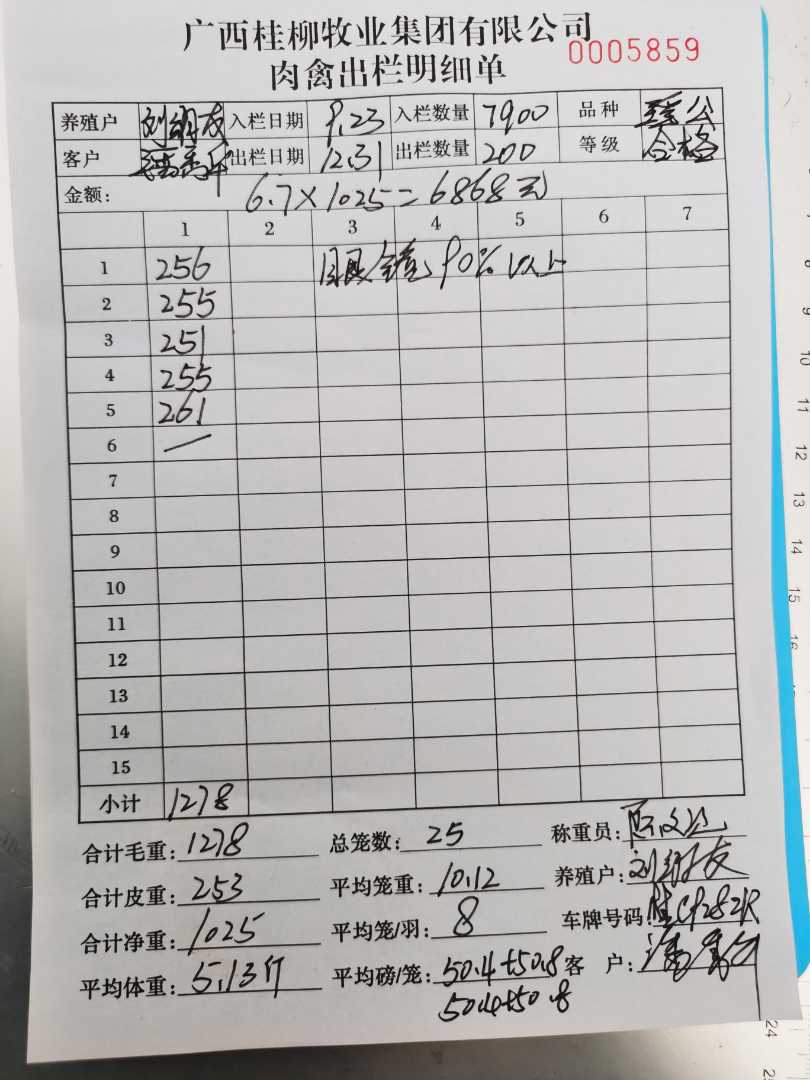 广西桂柳牧业集团有限公司
0005859
肉禽出栏明细单
养殖户 刘朝友 入栏日期 9.23 入栏数量 7900 品种 公
客户 出栏日期 12.31 出栏数量 200 等级 合格
金额： 6.7×1025=6868元
1 2 3 4 5 6 7
1 256 眼全 90%以上
2 255
3 251
4 255
5 261
6 —
7
8
9
10
11
12
13
14
15
小计 1278
合计毛重: 1278 总笼数: 25 称重员:
合计皮重: 253 平均笼重: 10.12 养殖户: 刘朝友
合计净重: 1025 平均笼/羽: 8 车牌号码:
平均体重: 5.13斤 平均磅/笼: 50.4+50.8 客 户:
50.4+50.8
10
11
12
13
14
15
24